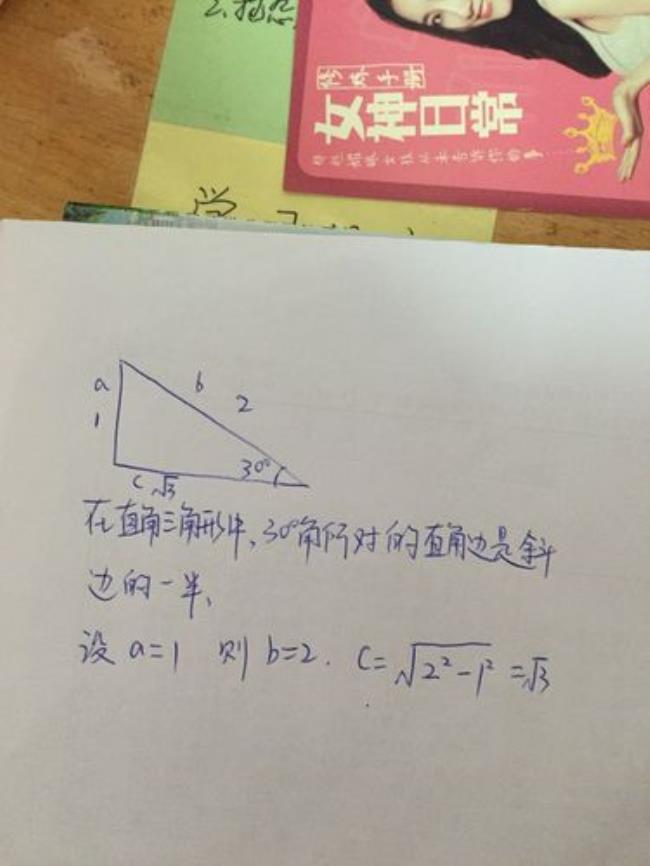 修炼手册
女神日常
a
b
2
1
30°
c √3
在直角三角形中、30°角所对的直角边是斜
边的一半、
设 a=1 则 b=2. c=√(2²-1²) =√3